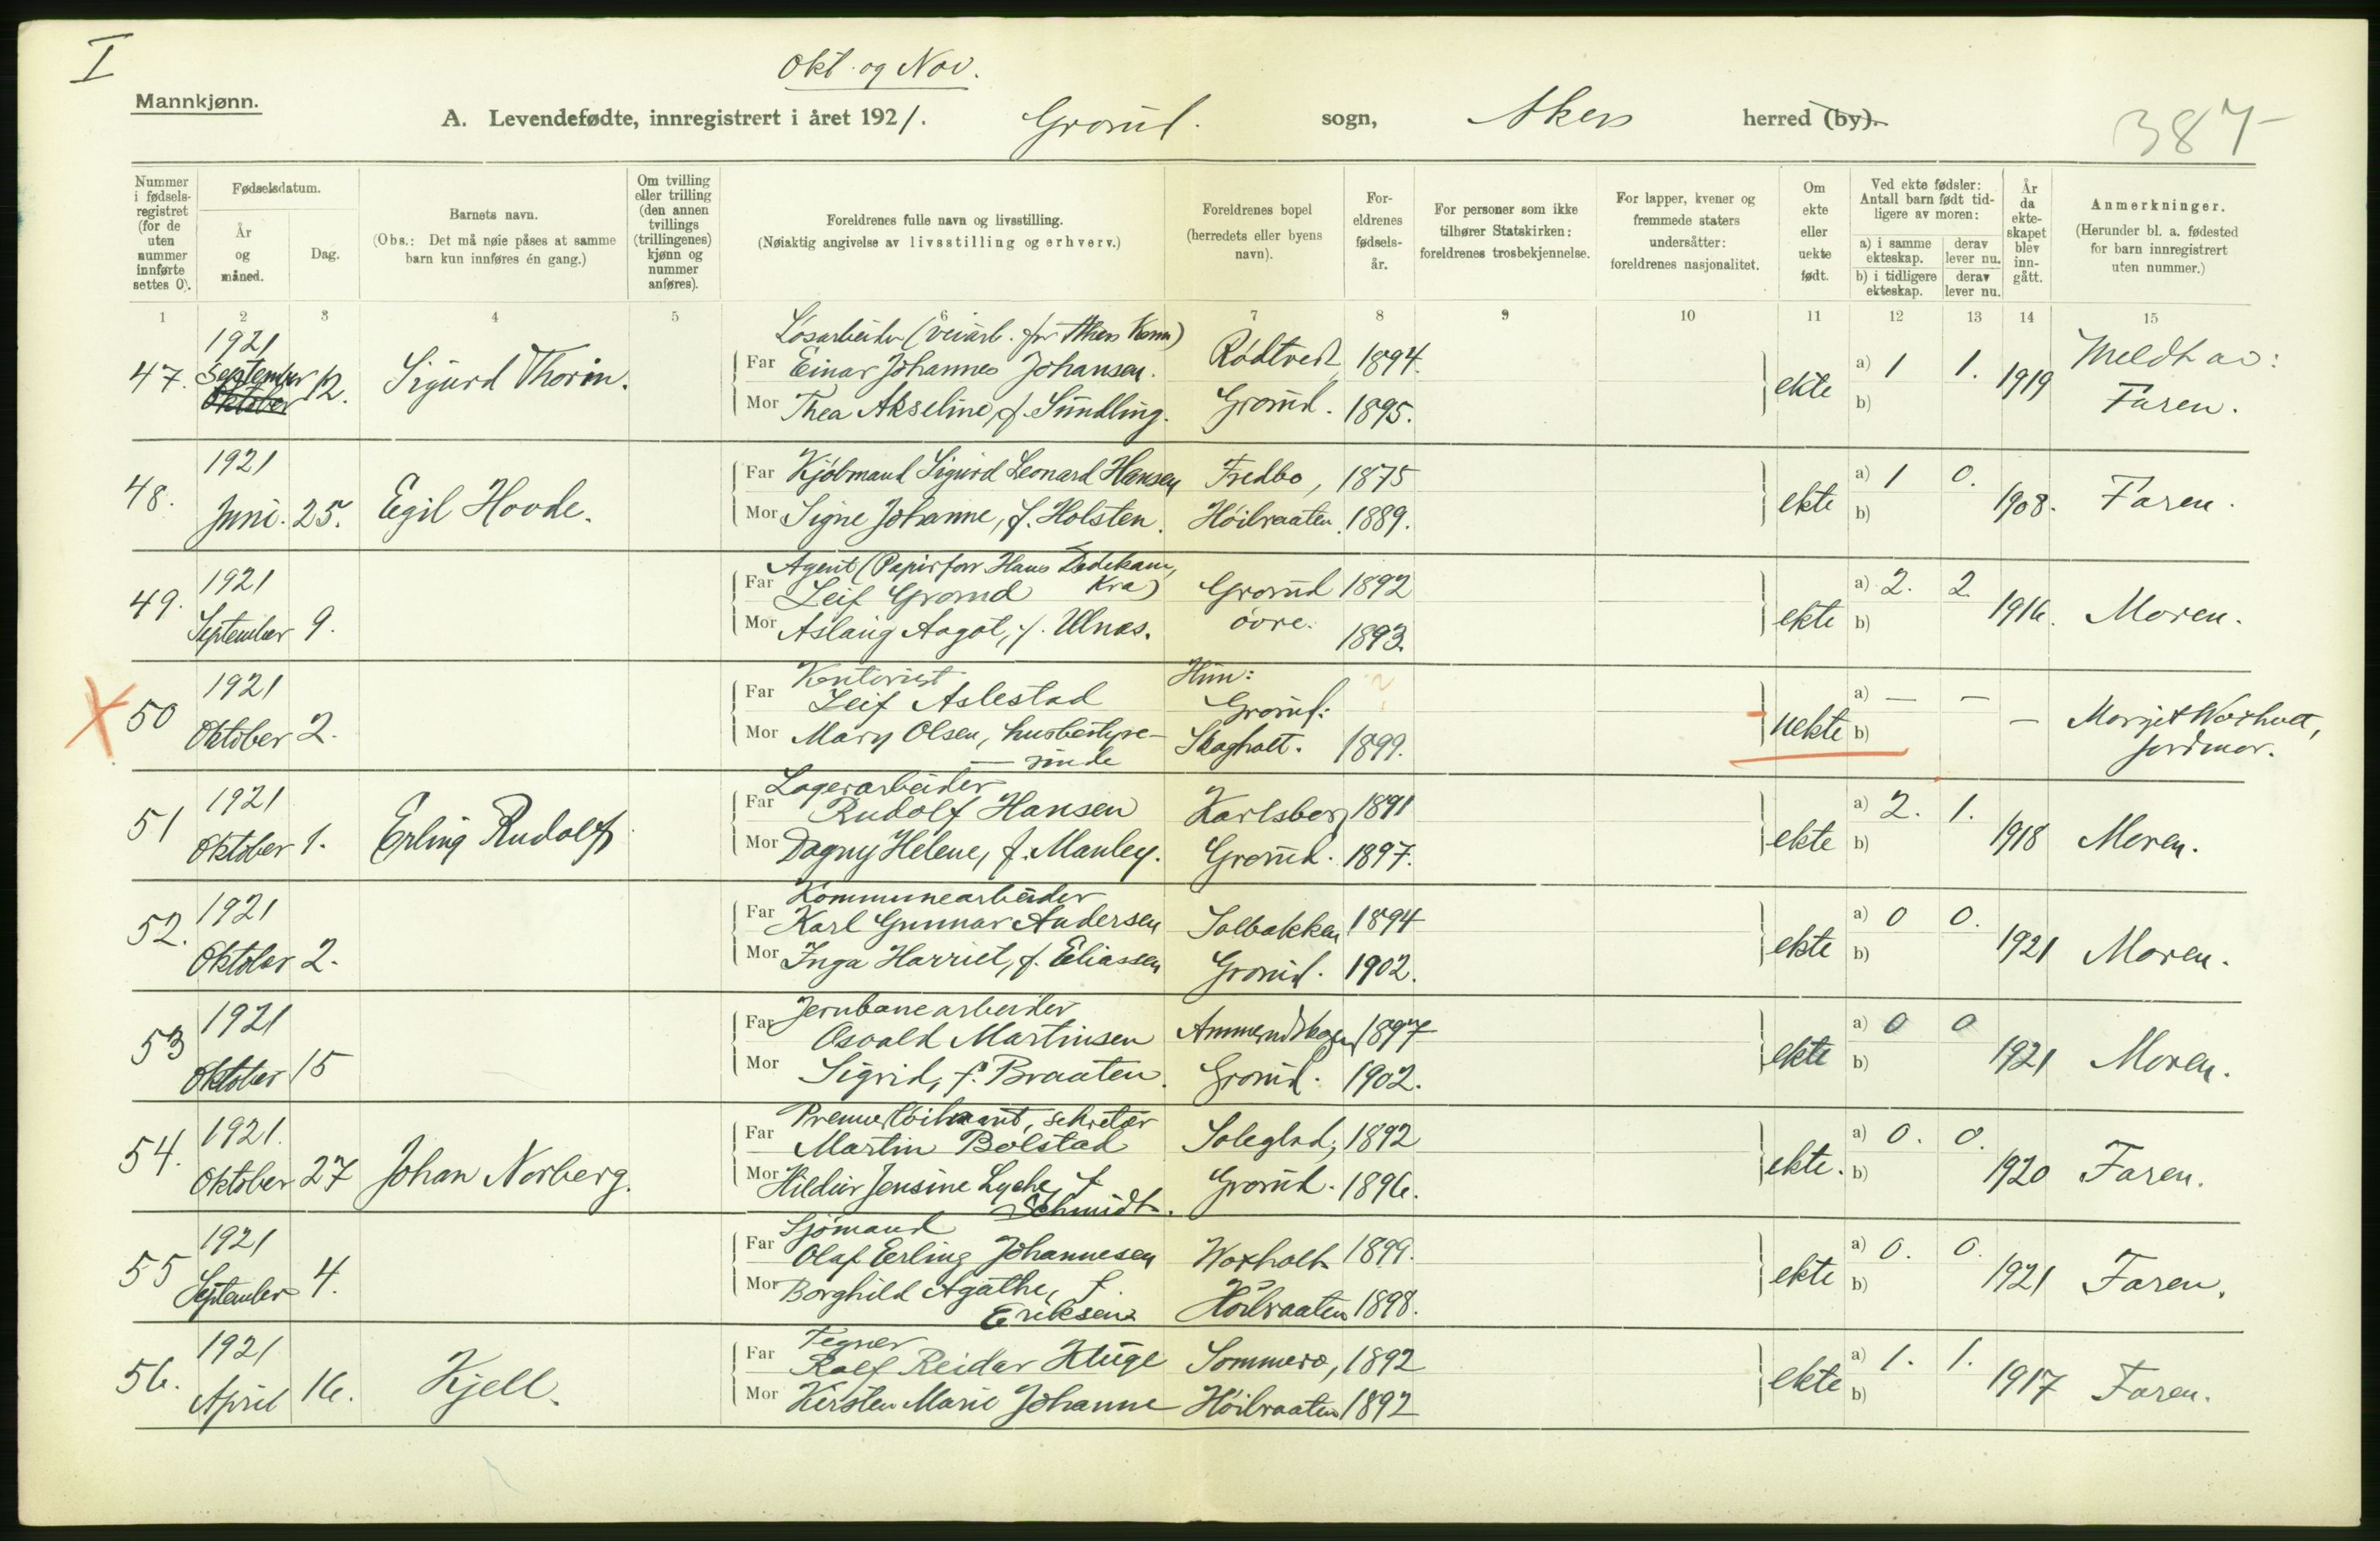 I
Okt. og Nov.
Mannkjønn.
A. Levendefødte, innregistrert i året 1921. Grorud. sogn, Akers herred (by).
387
Nummer i fødsels-registret (for de uten nummer innførte settes 0).
Fødselsdatum.
År og måned.
Dag.
Barnets navn.
(Obs.: Det må nøie påses at samme barn kun innføres én gang.)
Om tvilling eller trilling (den annen tvillings (trillingenes) kjønn og nummer anføres).
Foreldrenes fulle navn og livsstilling.
(Nøiaktig angivelse av livsstilling og erhverv.)
Foreldrenes bopel (herredets eller byens navn).
For-eldrenes fødsels-år.
For personer som ikke tilhører Statskirken: foreldrenes trosbekjennelse.
For lapper, kvener og fremmede staters undersåtter: foreldrenes nasjonalitet.
Om ekte eller uekte født.
Ved ekte fødsler: Antall barn født tid-ligere av moren:
a) i samme ekteskap. derav lever nu.
b) i tidligere ekteskap. derav lever nu.
År da ekte-skapet blev inn-gått.
Anmerkninger.
(Herunder bl. a. fødested for barn innregistrert uten nummer.)
1 2 3 4 5 6 7 8 9 10 11 12 13 14 15
Løsarbeider (veiarb. for Akers Kom)
47. 1921 September Oktober 12. Sigurd Thorin. Far Einar Johannes Johansen. Rødtvedt 1894. ekte a) 1 1. 1919 Meldt av: Faren.
Mor Thea Akseline, f. Sundling. Grorud. 1895. b)
48. 1921 Juni. 25. Egil Hovde. Far Kjøbmand Sigurd Leonard Hansen Fredbo, 1875 ekte a) 1 0. 1908. Faren.
Mor Signe Johanne, f. Holsten. Høibraaten. 1889. b)
Agent (Papirforr. Hans Dedekam, Kra)
49. 1921 September 9. Far Leif Grorud Grorud 1892 ekte a) 2. 2 1916. Moren.
Mor Aslaug Aagot, f. Ulnæs. øvre. 1893. b)
Kontorist Hun:
50 1921 Oktober 2. Far Leif Aslestad Grorud: ? uekte a) — — — Margit Woxholt, jordmor.
Mor Mary Olsen, husbestyre-rinde Skogholt. 1899. b)
Lagerarbeider
51 1921 Oktober 1. Erling Rudolf Far Rudolf Hansen Karlsberg 1891 ekte a) 2. 1. 1918 Moren.
Mor Dagny Helene, f. Manley. Grorud. 1897. b)
Kommunearbeider
52. 1921 Oktober 2. Far Karl Gunnar Andersen Solbakken 1894 ekte a) 0 0. 1921 Moren.
Mor Inga Harriet, f. Eliassen Grorud. 1902. b)
Jernbanearbeider
53 1921 Oktober 15 Far Osvald Martinsen 1897 ekte a) 0 0 1921 Moren.
Mor Sigrid, f. Braaten. Grorud. 1902. b)
Premierløitnant, sekretær
54. 1921. Oktober 27 Johan Norberg. Far Martin Bolstad Soleglad, 1892 ekte. a) 0. 0. 1920 Faren.
Mor Hildur Jensine Lyche, f. Schmidt. Grorud. 1896. b)
Sjømand
55 1921 September 4. Far Olaf Erling Johannesen Woxholt 1899. ekte a) 0. 0. 1921 Faren.
Mor Borghild Agathe, f. Eriksen Høibraaten 1898. b)
Tegner
56. 1921 April 16. Kjell. Far Rolf Reidar Kluge Sommero, 1892 ekte a) 1. 1. 1917 Faren.
Mor Kirsten Marie Johanne Høibraaten 1892 b)